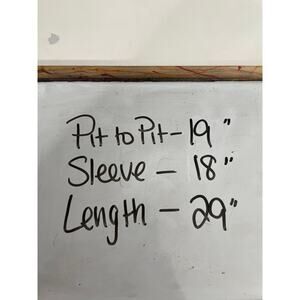 Pit to Pit - 19"
Sleeve - 18"
Length - 29"